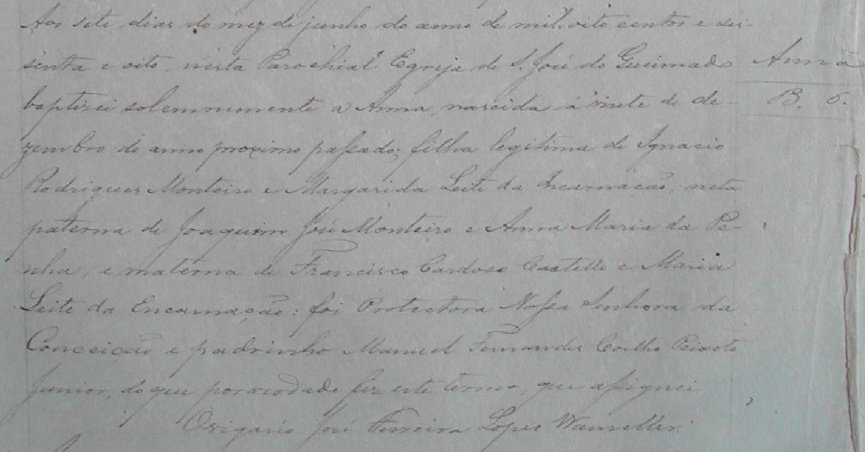 Aos sete dias do mez de junho do anno de mil oito centos e ses-
senta e oito, nesta Parochial Egreja de S. José do Queimado
baptizei solemnemente a Anna, nascida á vinte de de-
zembro do anno proximo passado; filha legitima de Ignacio
Rodrigues Monteiro e Margarida Leite da Incarnacão; neta
paterna de Joaquim José Monteiro e Anna Maria da Pe-
nha, e materna de Francisco Cardoso Castello e Maria
Leite da Encarnação: foi Protectora Nossa Senhora da
Conceicão e padrinho Manuel Fernandes Coelho Peixoto
Junior, do que por verdade fiz este termo, que assignei
O vigario José Ferreira Lopes Wanzeller.
Anna
B. 6.